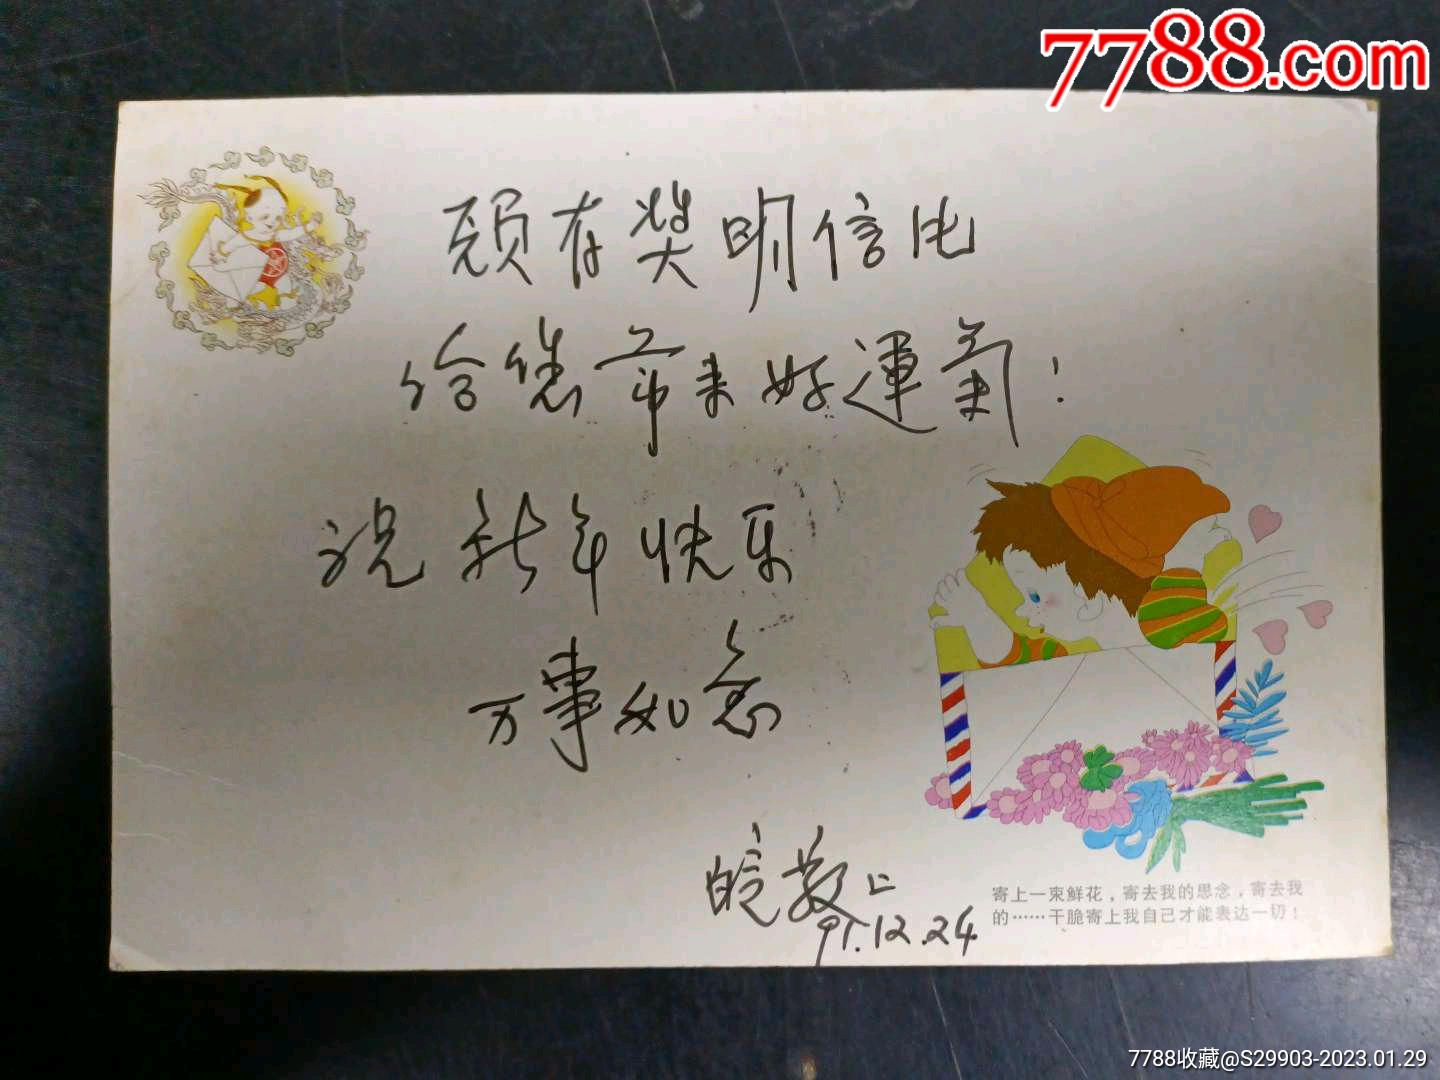 7788.com
愿有奖明信片
给您带来好運氣！
祝新年快乐
万事如意
皖敬上
91.12.24
寄上一束鮮花，寄去我的思念，寄去我
的……干脆寄上我自己才能表达一切！
7788收藏@S29903-2023.01.29